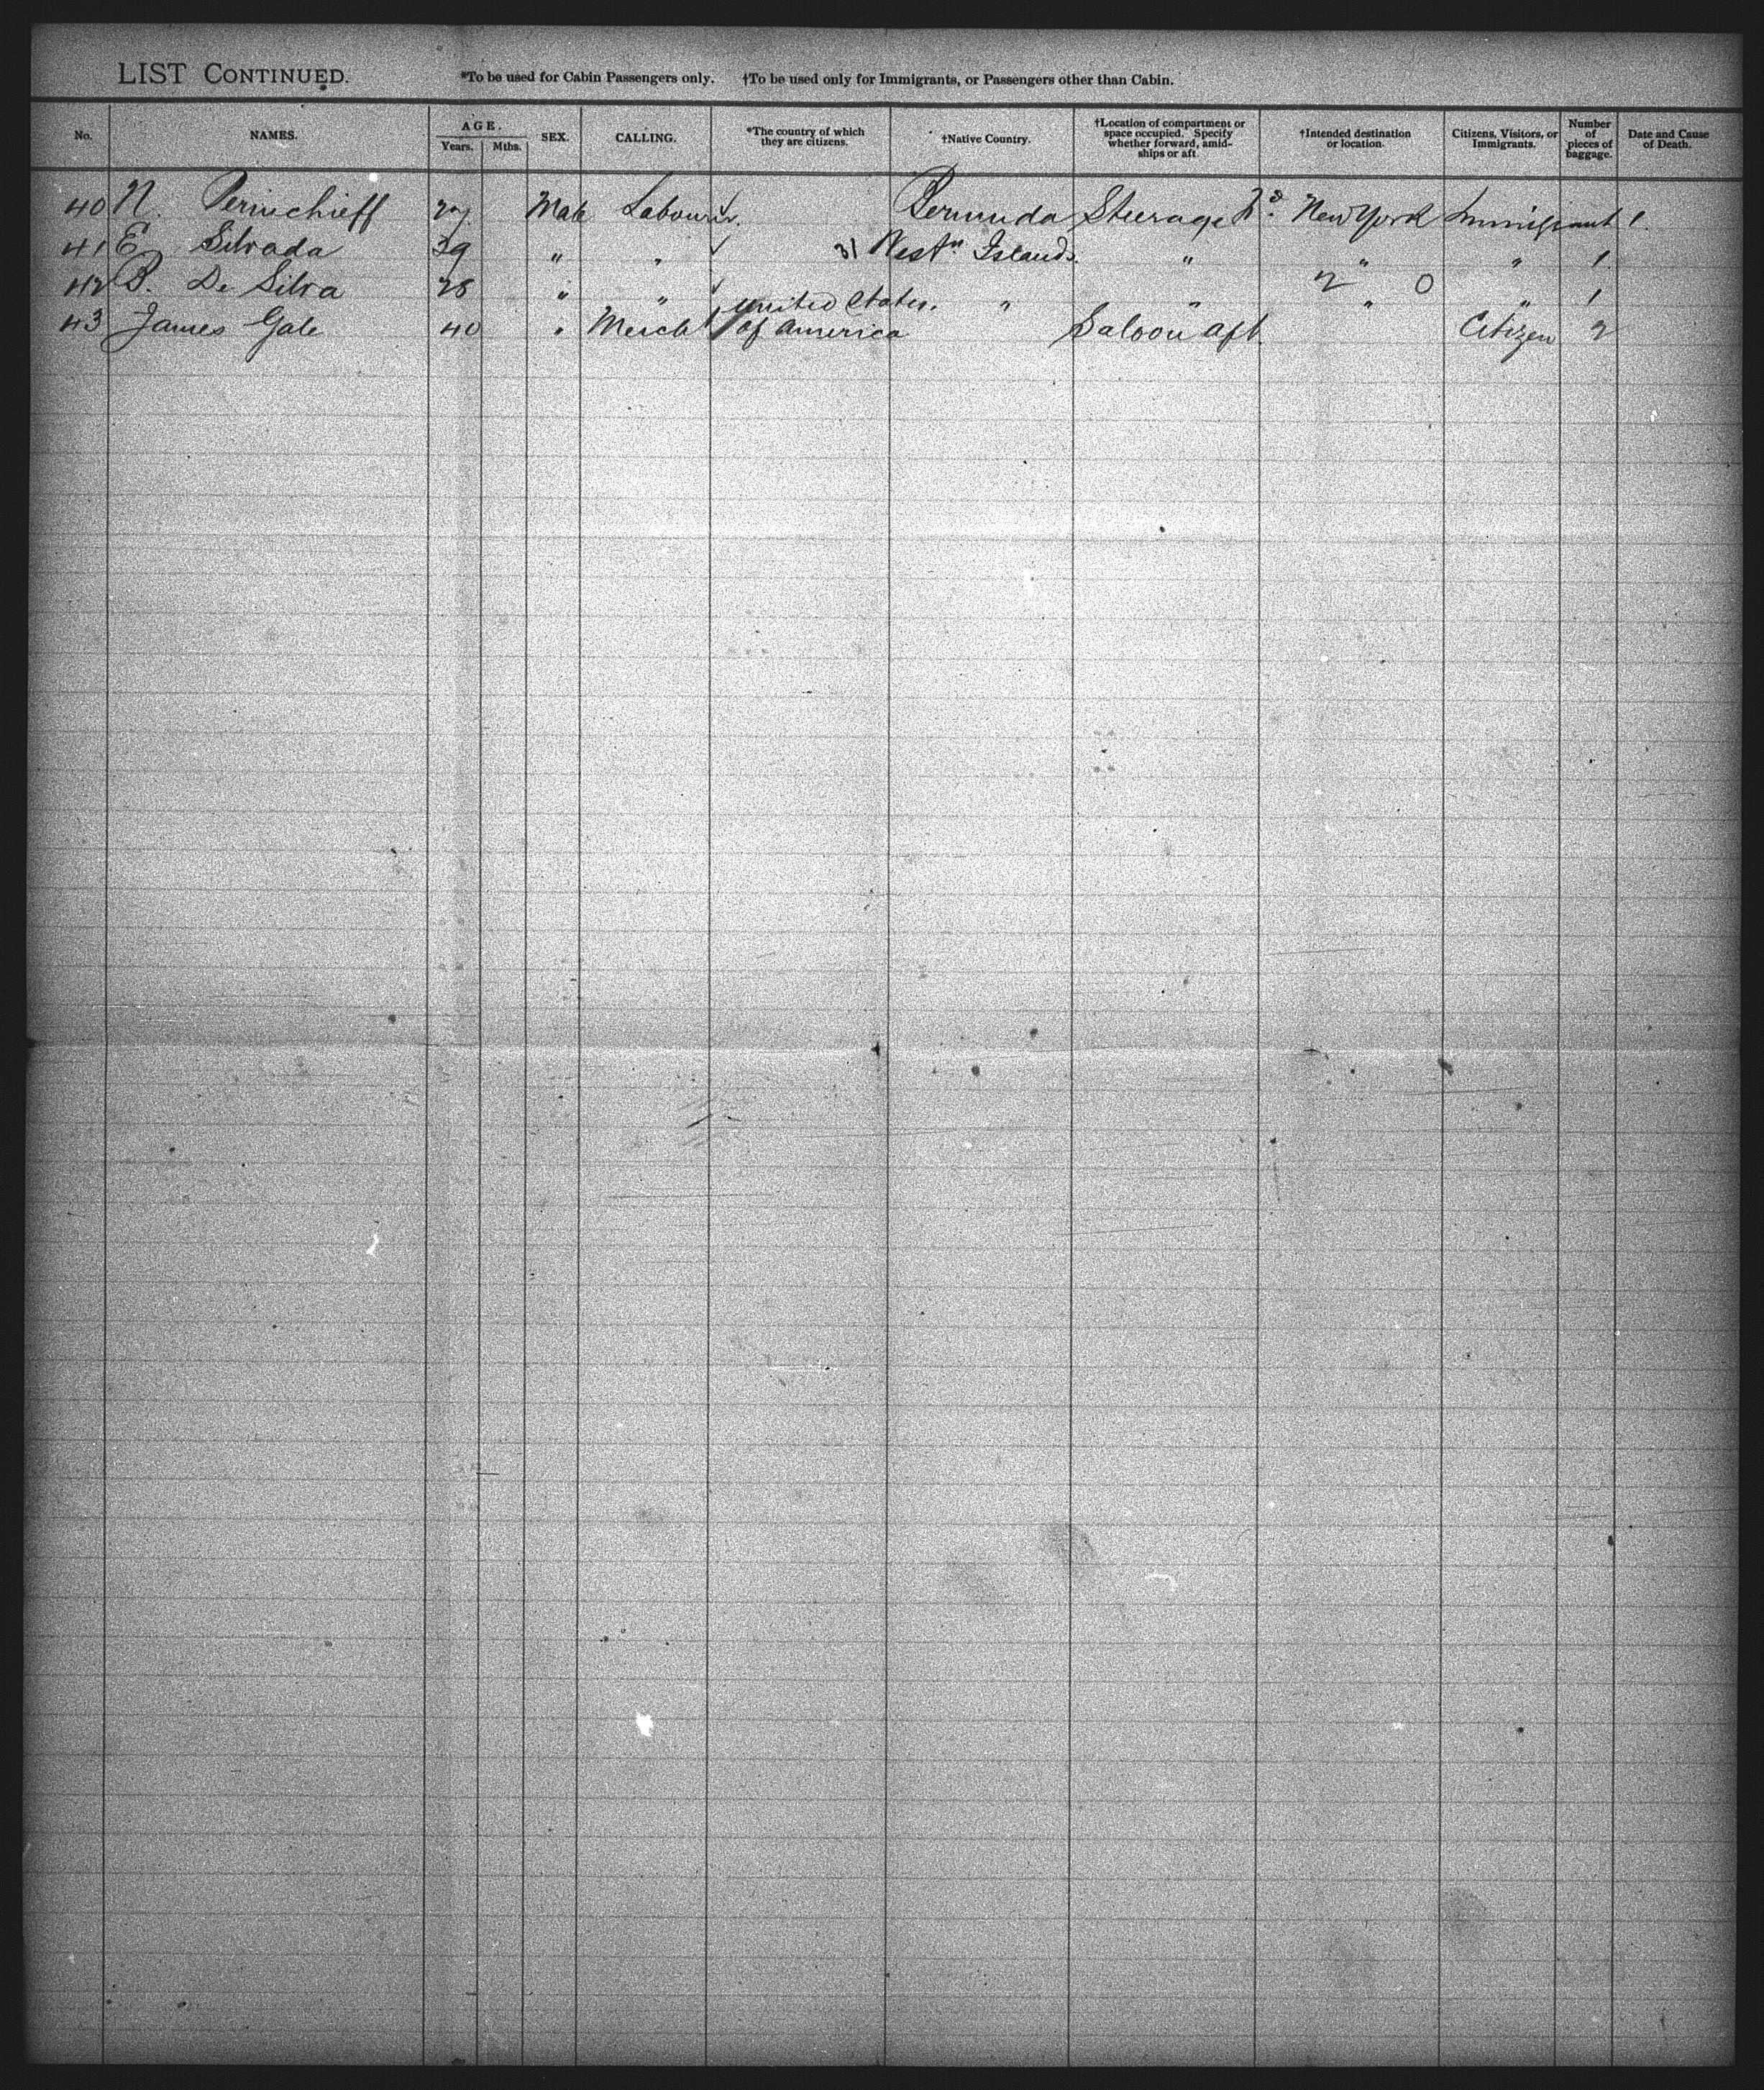 LIST CONTINUED. *To be used for Cabin Passengers only. †To be used only for Immigrants, or Passengers other than Cabin.
No. NAMES. AGE. Years. Mths. SEX. CALLING. *The country of which they are citizens. †Native Country. †Location of compartment or space occupied. Specify whether forward, amidships or aft. †Intended destination or location. Citizens, Visitors, or Immigrants. Number of pieces of baggage. Date and Cause of Death.
40 N. Perinchieff 27 Male Labourer ✓ Bermuda Steerage New York Immigrant 1.
41 E Silvada 39 " " ✓ 31 Westn Islands. " " " 1.
42 B. De Silva 28 " " ✓ " " 2 " 0 " 1
43 James Gale 40 " Mercht United States. of America Saloon aft. Citizen 2